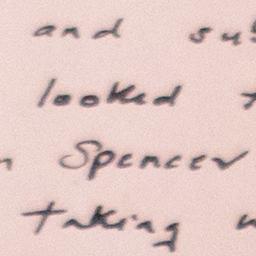 and
looked
Spencer
taking